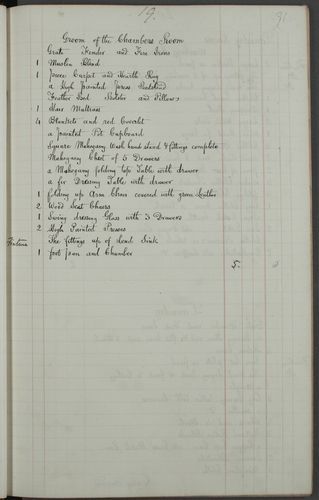 19.
91
Groom of the Chambers Room
Grate Fender and Fire Irons
1 Muslin Blind
1 piece Carpet and Hearth Rug
a High painted press Bedstead
Feather Bed Bolster and Pillows
1 Hair Mattrass
4 Blankets and red Coverlet
a painted Pot Cupboard
Square Mahogany Wash hand stand & fittings complete
Mahogany Chest of 5 Drawers
a Mahogany folding top Table with drawer
a fir Dressing Table with drawer
1 folding up Arm Chair covered with green Leather
2 Wood Seat Chairs
1 Swing dressing Glass with 3 Drawers
2 High Painted Presses
Fixtures The fittings up of lead Sink
1 foot pan and Chamber
5.